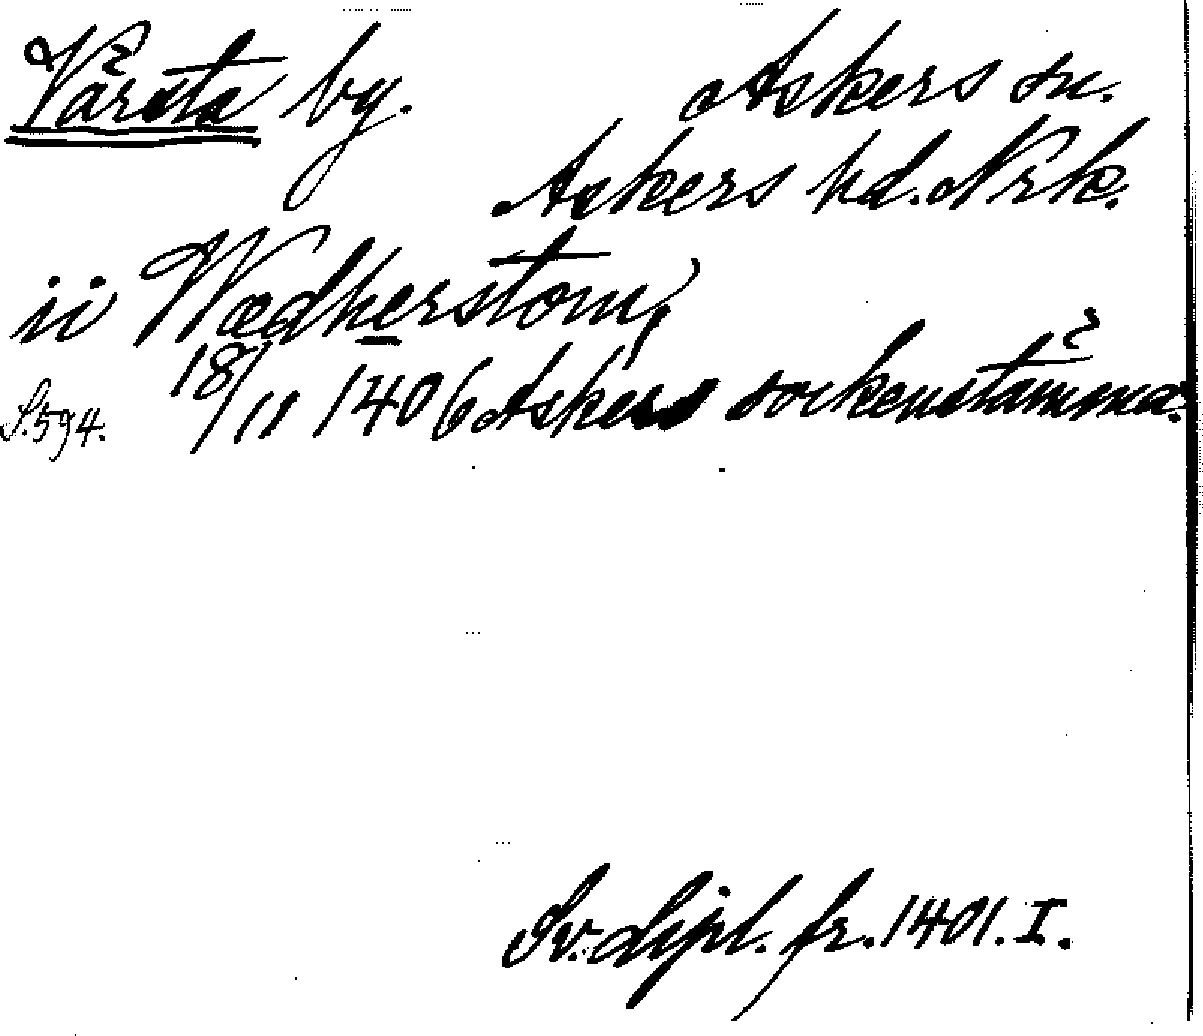 Vårsta by. Askers sn.
Askers hd. Nrk.
ii Wædherstom,
S. 594. 18/11 1406 Askers sockenstämma.
Sv. dipl. fr. 1401. I.